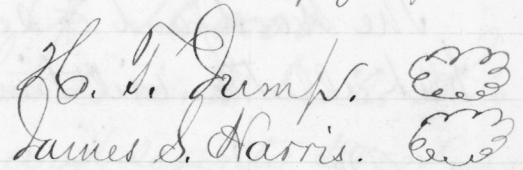 H. T. Jump.
James S. Harris.